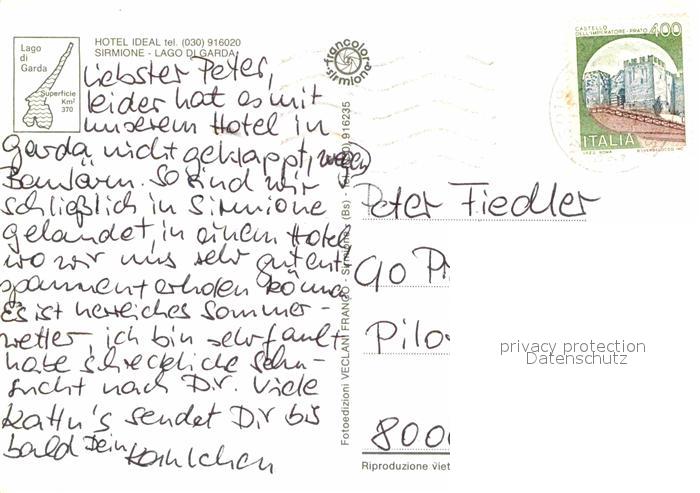 Lago
di
Garda
Superficie
Km²
370
HOTEL IDEAL tel. (030) 916020
SIRMIONE - LAGO DI GARDA
francolor
sirmione
CASTELLO
DELL'IMPERATORE - PRATO
400
ITALIA
Liebster Peter,
leider hat es mit
unserem Hotel in
Garda nicht geklappt, wegen
Baulärm. So sind wir
schließlich in Sirmione
gelandet, in einem Hotel
wo wir uns sehr gut ent-
spannent erholen können
Es ist herrliches Sommer-
wetter, ich bin sehr faul +
habe schreckliche Sehn-
sucht nach Dir. Viele
sendet Dir bis
bald Dein
Fotoedizioni VECLANI FRANCO - Sirmione (Bs) - 916235
Peter Fiedler
90 Pr
Pilo
800
privacy protection
Datenschutz
Riproduzione viet